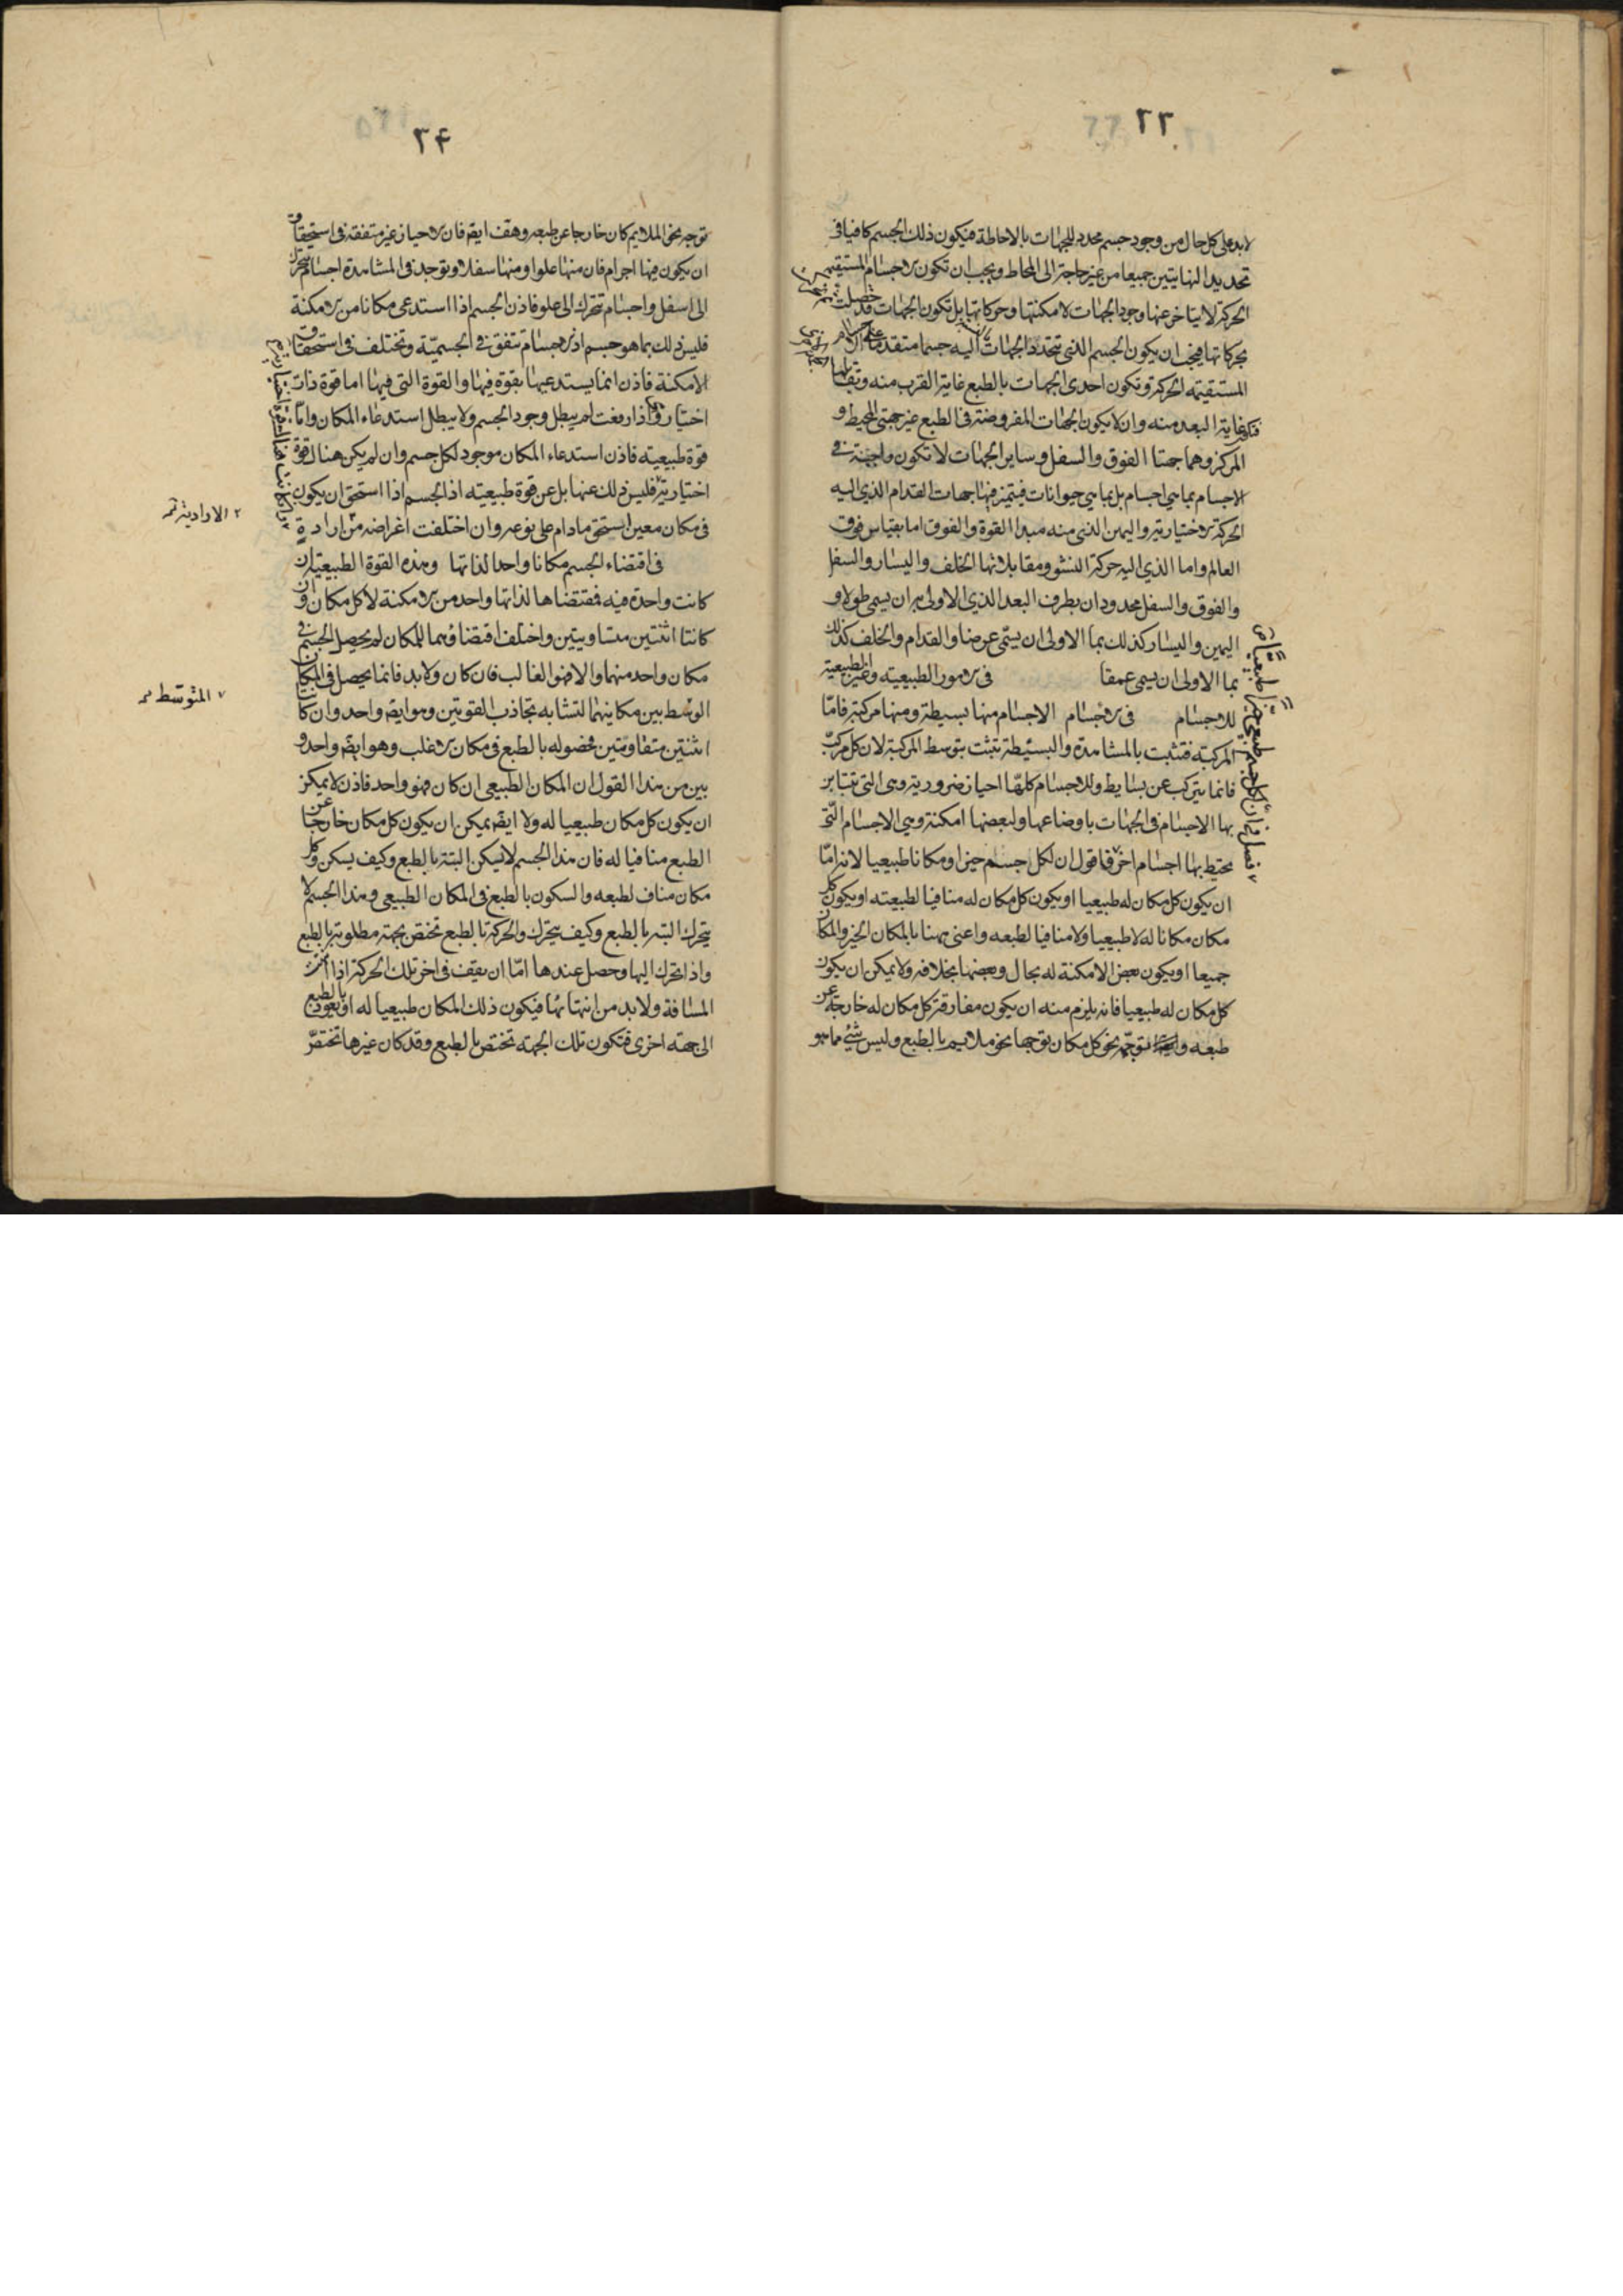 ٢٣
لابد على كل حال من وجود جسم محدد للجهات بالاحاطة فيكون ذلك الجسم كافيا في
تحديد النهايتين جميعا من غير حاجة الى المحاط ويجب ان تكون الاجسام المستقيمة
الحركة لا يتاخر عنها وجود الجهات لامكنتها وحركاتها بل تكون الجهات قد حصلت
بحركاتها فيجب ان يكون الجسم الذي تتحدد الجهات اليه جسما متقدما على الاجسام
المستقيمة الحركة وتكون احدى الجهات بالطبع غاية القرب منه وتقابلها
غاية البعد منه وان لا يكون الجهات المفروضة في الطبع غير جهتي المحيط و
المركز وهما جهتا الفوق والسفل وساير الجهات لا تكون واجبة في
الاجسام بما هي اجسام بل بما هي حيوانات فيتميز فيها جهات القدام الذي اليه
الحركة الاختيارية واليمين الذي منه مبدا القوة والفوق اما بقياس فوق
العالم واما الذي اليه حركة النشو ومقابلاتها الخلف واليسار والسفل
والفوق والسفل محدودان بطرف البعد الذي الاولى به ان يسمى طولا و
اليمين واليسار كذلك بما الاولى ان يسمى عرضا والقدام والخلف كذلك
بما الاولى ان يسمى عمقا في الامور الطبيعية وغير الطبيعية
للاجسام في الاجسام الاجسام منها بسيطة ومنها مركبة فاما
المركبة فتثبت بالمشاهدة والبسيطة تثبت بتوسط المركبة لان كل مركب
فانما يتركب عن بسايط وللاجسام كلها احياز ضرورية وهي التي تتباين
بها الاجسام في الجهات باوضاعها ولبعضها امكنة وهي الاجسام التي
محيط بها اجسام اخر فاقول ان لكل جسم حيزا ومكانا طبيعيا لانه اما
ان يكون كل مكان له طبيعيا او يكون كل مكان له منافيا لطبيعته او يكون كل
مكان مكانا له لا طبيعيا ولا منافيا لطبعه واعني ههنا بالمكان الحيز والمكان
جميعا او يكون بعض الامكنة له بحال وبعضها بخلافه ولا يمكن ان يكون
كل مكان له طبيعيا فانه يلزم منه ان يكون مفارقة كل مكان له خارجة عن
طبعه و توجهه نحو كل مكان توجها نحو ملايم بالطبع وليس شيء مما هو
٢٤
توجه نحو الملايم كان خارجا عن طبعه وهف ايضا فان الاحياز غير متفقة في استحقاق
ان يكون فيها اجرام فان منها علوا ومنها سفلا وتوجد في المشاهدة اجسام تتحرك
الى اسفل واجسام تتحرك الى علو فاذن الجسم اذا استدعى مكانا من الامكنة
فليس ذلك بما هو جسم اذ الاجسام تتفق في الجسمية وتختلف في استحقاق
الامكنة فاذن انما يستدعيها بقوة فيها والقوة التي فيها اما قوة ذات
اختيار واذا رفعت لم يبطل وجود الجسم ولا يبطل استدعاء المكان واما
قوة طبيعية فاذن استدعاء المكان موجود لكل جسم وان لم يكن هناك قوة
اختيارية فليس ذلك عنها بل عن قوة طبيعية اذ الجسم اذا استحق ان يكون
في مكان معين استحق مادام على نوعه وان اختلفت اغراضه من ارادة
٢ الارادية تم
في اقتضاء الجسم مكانا واحدا لذاتها وهذه القوة الطبيعية ان
كانت واحدة فيه فمقتضاها لذاتها واحد من الامكنة لا كل مكان وان
كانتا اثنتين متساويتين واختلف اقتضاؤهما للمكان لم يحصل الجسم في
مكان واحد منهما والا فهو الغالب فان كان ولابد فانما يحصل في المكان
٧ المتوسط
الوسط بين مكانيهما لتشابه تجاذب القوتين وهو ايضا واحد وان كانتا
اثنتين متفاوتتين فحصوله بالطبع في مكان الاغلب وهو ايضا واحد و
بين من هذا القول ان المكان الطبيعي ان كان فهو واحد فاذن لا يمكن
ان يكون كل مكان طبيعيا له ولا ايضا يمكن ان يكون كل مكان خارجا عن
الطبع منافيا له فان هذا الجسم لا يسكن البتة بالطبع وكيف يسكن وكل
مكان مناف لطبعه والسكون بالطبع في المكان الطبيعي وهذا الجسم لا
يتحرك البتة بالطبع وكيف يتحرك والحركة بالطبع تختص بجهة مطلوبة بالطبع
واذا تحرك اليها وحصل عندها اما ان يقف في اخر تلك الحركة اذا
المسافة ولابد من انتهائها فيكون ذلك المكان طبيعيا له او يعود بالطبع
الى جهة اخرى فتكون تلك الجهة تختص بالطبع وقد كان غيرها تختص